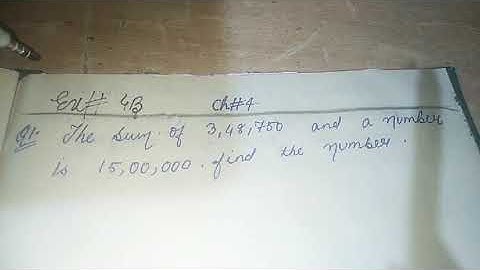 Ex# 4B Ch#4
Q1. The sum of 3,48,750 and a number
is 15,00,000. find the number.